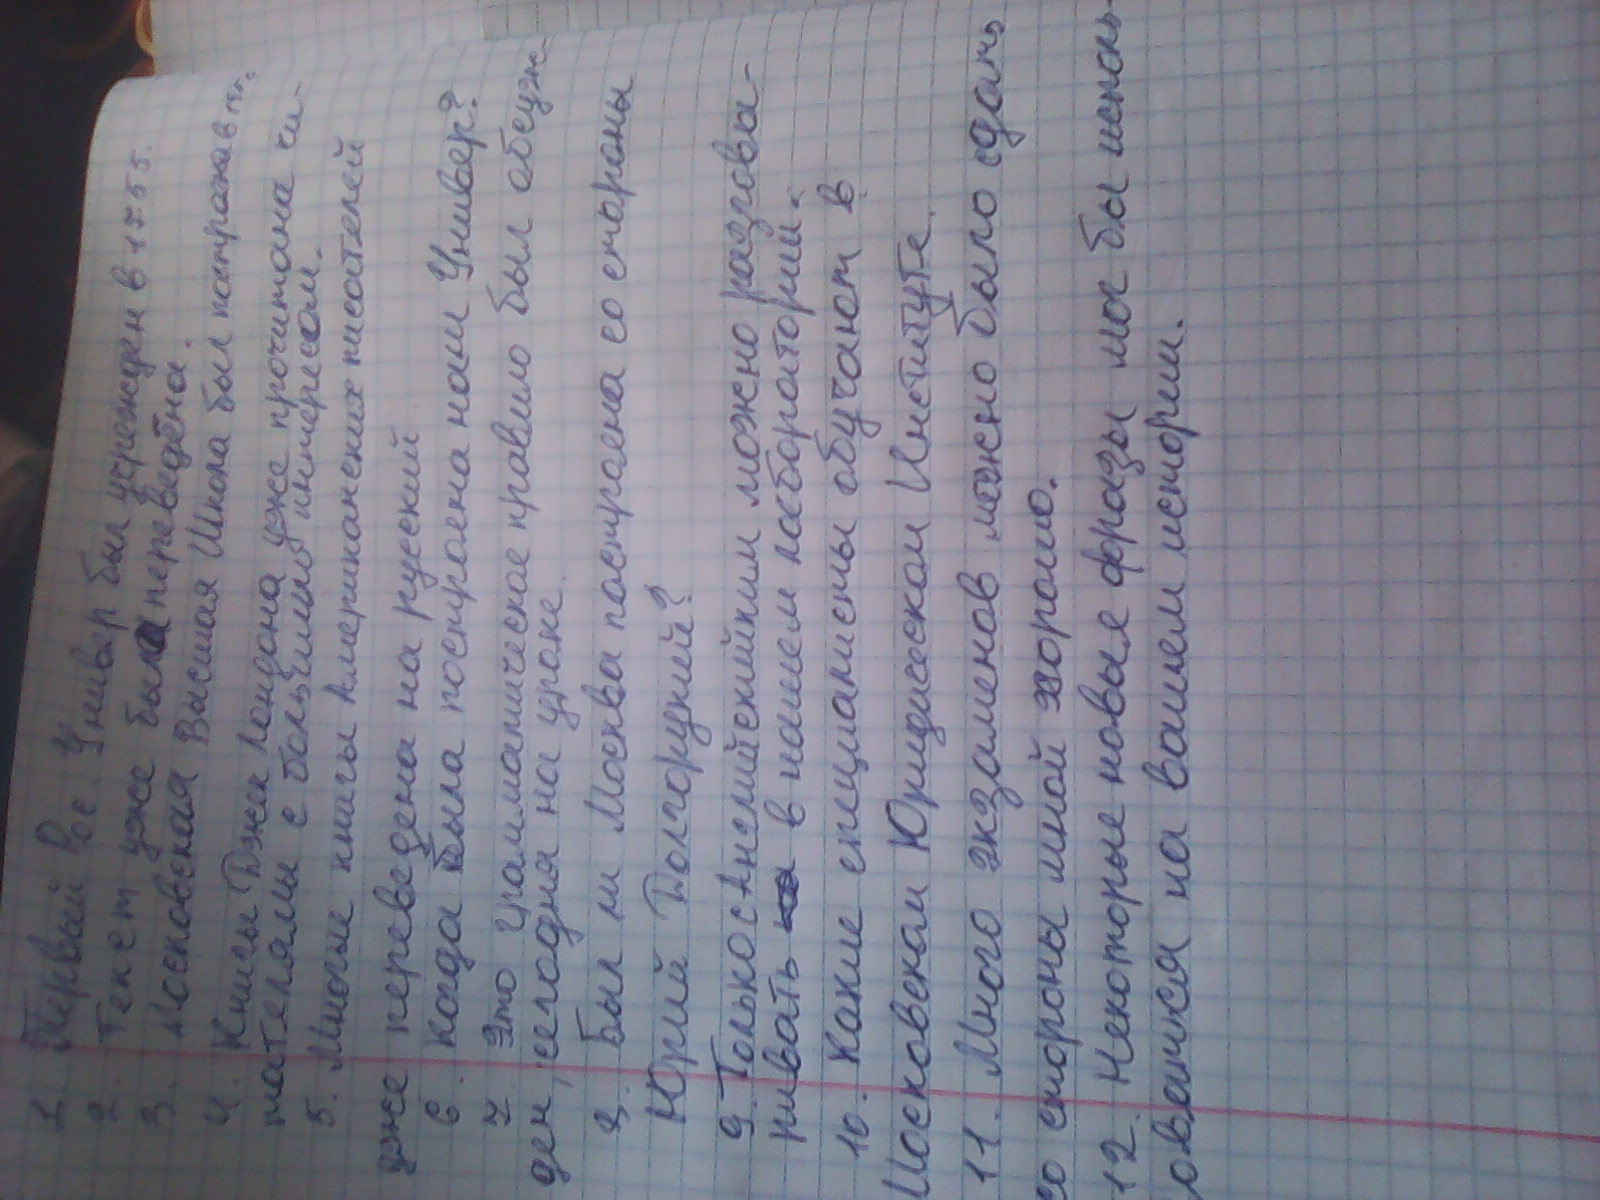 1. Первый Рос. Универ был учрежден в 1755.
2. Текст уже была переведена.
3. Московская Высшая Школа был построена в
4. Книги Джек Лондона уже прочитана чи-
тателями с большими интересом.
5. Многие книги Американских писателей
уже переведена на русский
6. Когда была построена наш Универ?
7. Это грамматическое правило был обсуж-
ден, сегодня на уроке.
8. Был ли Москва построена со стороны
Юрий Долгорукий?
9. Только с Английскийким можно разгова-
ривать в нашем лаборатории.
10. Какие специалисты обучают в
Московском Юридическом Институте.
11. Много экзаменов можно было сдать
со стороны мной хорошо.
12. Некоторые новые фразы мог бы исполь-
зоваться на вашем истории.